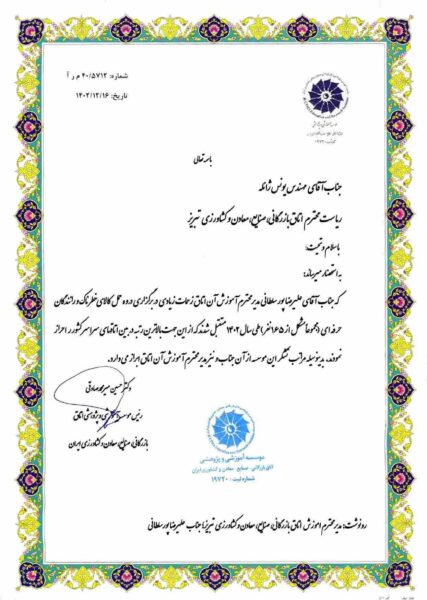 شماره: ۲۰/۵۷۱۲ م ر آ
تاریخ: ۱۴۰۲/۱۲/۱۶
باسمه تعالی
جناب آقای مهندس یونس ژائله
ریاست محترم اتاق بازرگانی، صنایع، معادن و کشاورزی تبریز
با سلام و تحیت؛
به استحضار میرساند:
که جناب آقای علیرضا پور سلطانی مدیر محترم آموزش آن اتاق زحمات زیادی در برگزاری دوره حمل کالای خطرناک و رانندگان
حرفه ای (مجموعا متشکل از ۱۶۵۰ نفر) طی سال ۱۴۰۲ متقبل شدند که از این جهت بالاترین رتبه در بین اتاقهای سراسر کشور را احراز
نمودند. بدینوسیله مراتب تشکر این موسسه از آن جناب و نیز مدیر محترم آموزش آن اتاق ابراز می دارد.
دکتر حسین میرمحمد صادقی
رئیس موسسه آموزشی و پژوهشی اتاق
بازرگانی، صنایع، معادن و کشاورزی ایران
موسسه آموزشی و پژوهشی
اتاق بازرگانی - صنایع - معادن و کشاورزی ایران
شماره ثبت: ۱۹۷۲۰
رونوشت: مدیر محترم اموزش اتاق بازرگانی، صنایع، معادن و کشاورزی تبریز؛ جناب علیرضا پور سلطانی